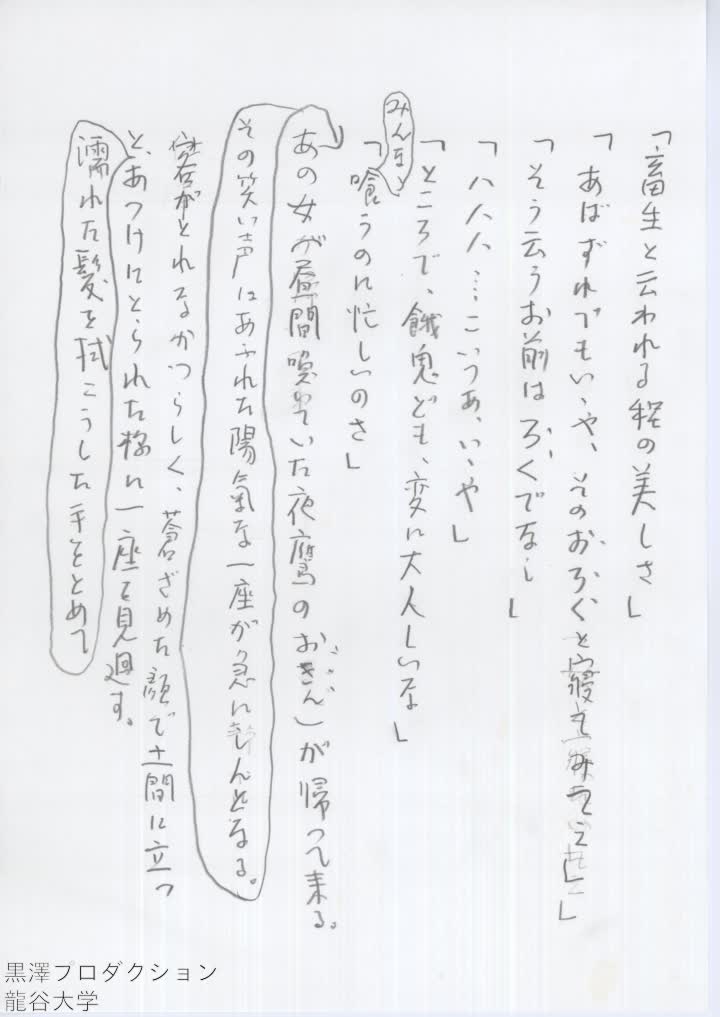 「畜生と云われる程の美しさ」
「あばずれでもいゝや、そのおろくと寝て
「そう云うお前はろくでなし」
「ハハハ……こいつあ、いゝや」
「ところで、餓鬼ども、変に大人しいな」
みんな
「喰うのに忙しいのさ」
あの女が昼間喚いていた夜鷹のおぎん）が帰って来る。
その笑い声にあふれた陽氣な一座が急にしんとなる。
客がとれなかつらしく、蒼ざめた顔で土間に立つ
と、あつけにとられた様に一座を見廻す。
濡れた髪を拭こうした手をとめて
黒澤プロダクション
龍谷大学